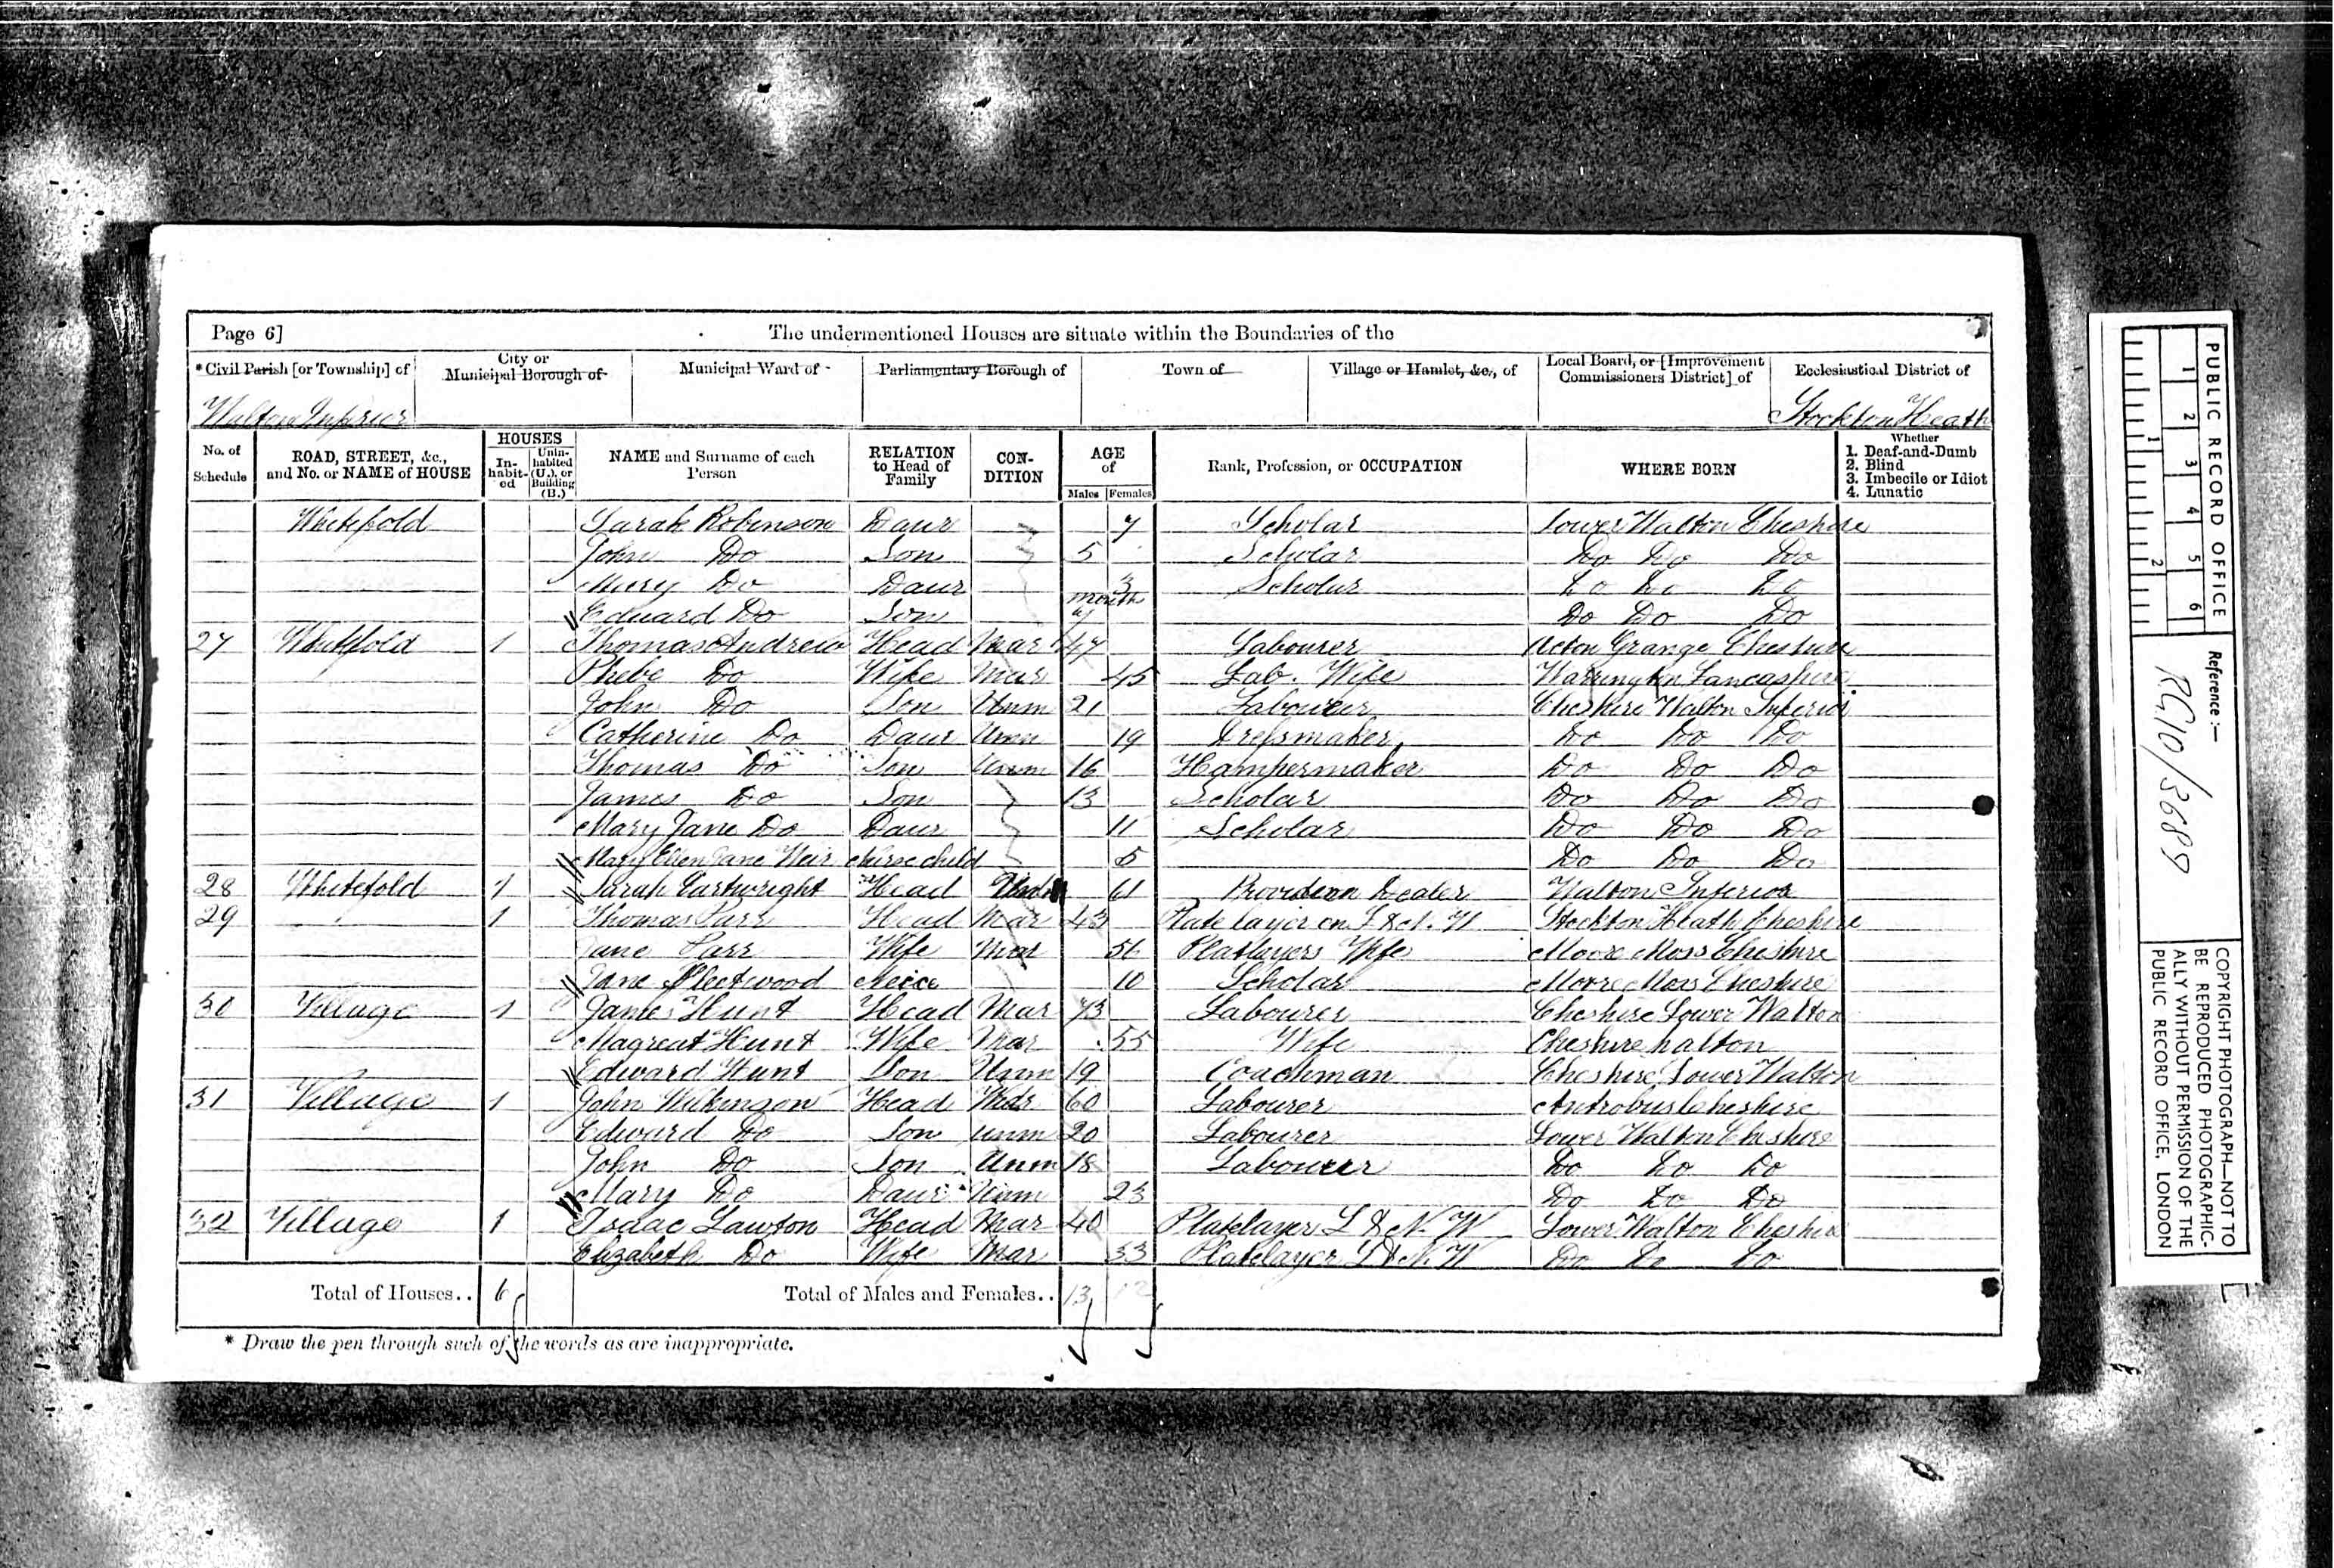 Page 6] The undermentioned Houses are situate within the Boundaries of the
*Civil Parish [or Township] of City or Municipal Borough of Municipal Ward of Parliamentary Borough of Town of Village or Hamlet, &c., of Local Board, or [Improvement Commissioners District] of Ecclesiastical District of
Walton Inferior Stockton Heath
No. of Schedule ROAD, STREET, &c., and No. or NAME of HOUSE HOUSES In-habit-ed Unin-habited (U.), or Building (B.) NAME and Surname of each Person RELATION to Head of Family CON-DITION AGE of Males Females Rank, Profession, or OCCUPATION WHERE BORN Whether 1. Deaf-and-Dumb 2. Blind 3. Imbecile or Idiot 4. Lunatic
Whitefold Sarah Robinson Daur 7 Scholar Lower Walton Cheshire
John Do Son 5 Scholar Do Do Do
Mary Do Daur 3 Scholar Do Do Do
Edward Do Son months Do Do Do
27 Whitefold 1 Thomas Andrew Head Mar 47 Labourer Acton Grange Cheshire
Phebe Do Wife Mar 45 Lab. Wife Warrington Lancashire
John Do Son Unm 21 Labourer Cheshire Walton Inferior
Catherine Do Daur Unm 19 Dressmaker Do Do Do
Thomas Do Son Unm 16 Hampermaker Do Do Do
James Do Son 13 Scholar Do Do Do
Mary Jane Do Daur 11 Scholar Do Do Do
Mary Ellen Jane Weir Nurse child 5 Do Do Do
28 Whitefold 1 Sarah Cartwright Head 61 Provision Dealer Walton Inferior
29 1 Thomas Parr Head Mar 43 Plate layer on L & N. W Stockton Heath Cheshire
Jane Parr Wife Mar 56 Platlayers Wife Moore Moss Cheshire
Jane Fleetwood Neice 10 Scholar Moore Moss Cheshire
30 Village 1 James Hunt Head Mar 73 Labourer Cheshire Lower Walton
Magreat Hunt Wife Mar 55 Wife Cheshire halton
Edward Hunt Son Unm 19 Coachman Cheshire Lower Walton
31 Village 1 John Wilkinson Head Mar 60 Labourer Antrobus Cheshire
Edward Do Son Unm 20 Labourer Lower Walton Cheshire
John Do Son Unm 18 Labourer Do Do Do
Mary Do Daur Unm 23 Do Do Do
32 Village 1 Isaac Lawton Head Mar 40 Platelayer L & N. W Lower Walton Cheshire
Elizabeth Do Wife Mar 33 Platelayer L & N. W Do Do Do
Total of Houses.. 6 Total of Males and Females.. 13 12
* Draw the pen through such of the words as are inappropriate.
PUBLIC RECORD OFFICE
1 2 3 4 5 6
1 2
Reference :—
RG10/3689
COPYRIGHT PHOTOGRAPH—NOT TO
BE REPRODUCED PHOTOGRAPHIC-
ALLY WITHOUT PERMISSION OF THE
PUBLIC RECORD OFFICE, LONDON